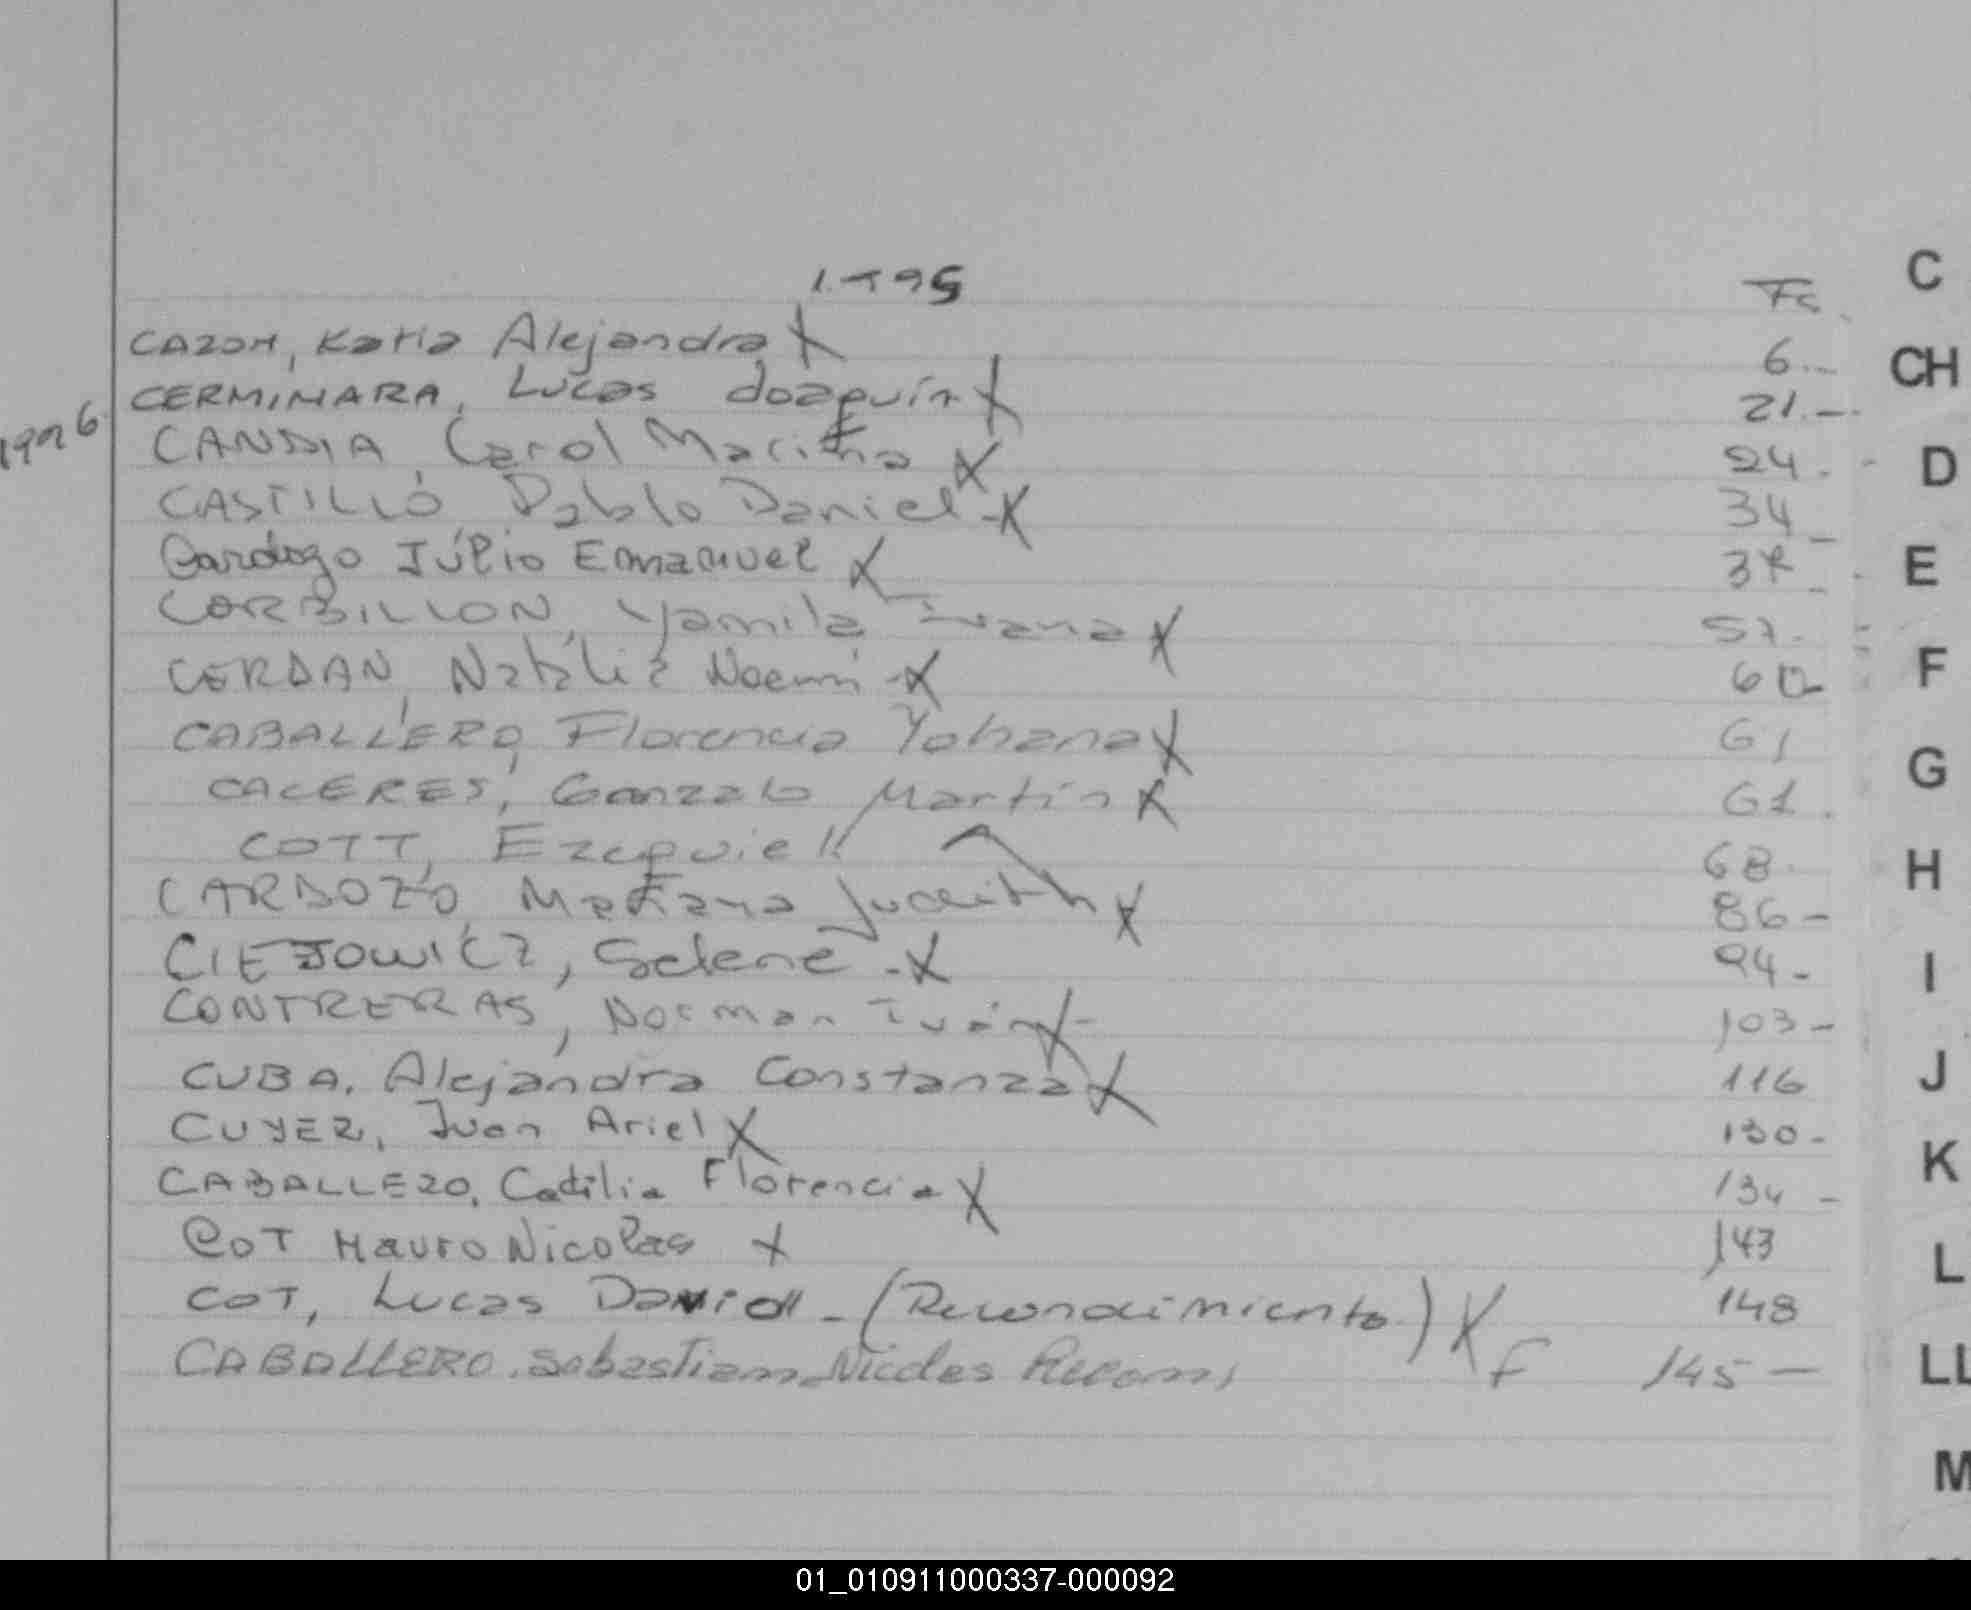 1995
Fs.
C
CAZON, Katia Alejandra X 6.-
CH
CERMINARA, Lucas Joaquín X 21.-
1996 CANDIA, Carol Maritha X 24.-
D
CASTILLO, Pablo Daniel - X 34
Cardozo Júlio Emmanuel X 37
E
CORBILLON, Yamila Ivana X 57.
CERDAN, Natalia Noemi - X 60-
F
CABALLERO, Florencia Yohana X 61
CACERES, Gonzalo Martín X 61.
G
COTT, Ezequiel 68.
H
CARDOZO, Judith X 86-
CIEJOWICZ, Selene - X 94-
I
CONTRERAS, Norman Iván X 103-
CUBA, Alejandra Constanza X 116
J
CUYER, Juan Ariel X 130-
CABALLERO, Florencia X 134 -
K
COT Mauro Nicolas X 143
L
COT, Lucas Daniel - (Reconocimiento) X 148
CABALLERO, Sebastian Nicolas F 145 -
LL
M
01_010911000337-000092